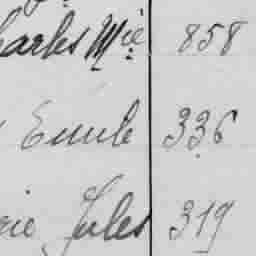 harles Mie 858
Emile 336
rie Jules 319